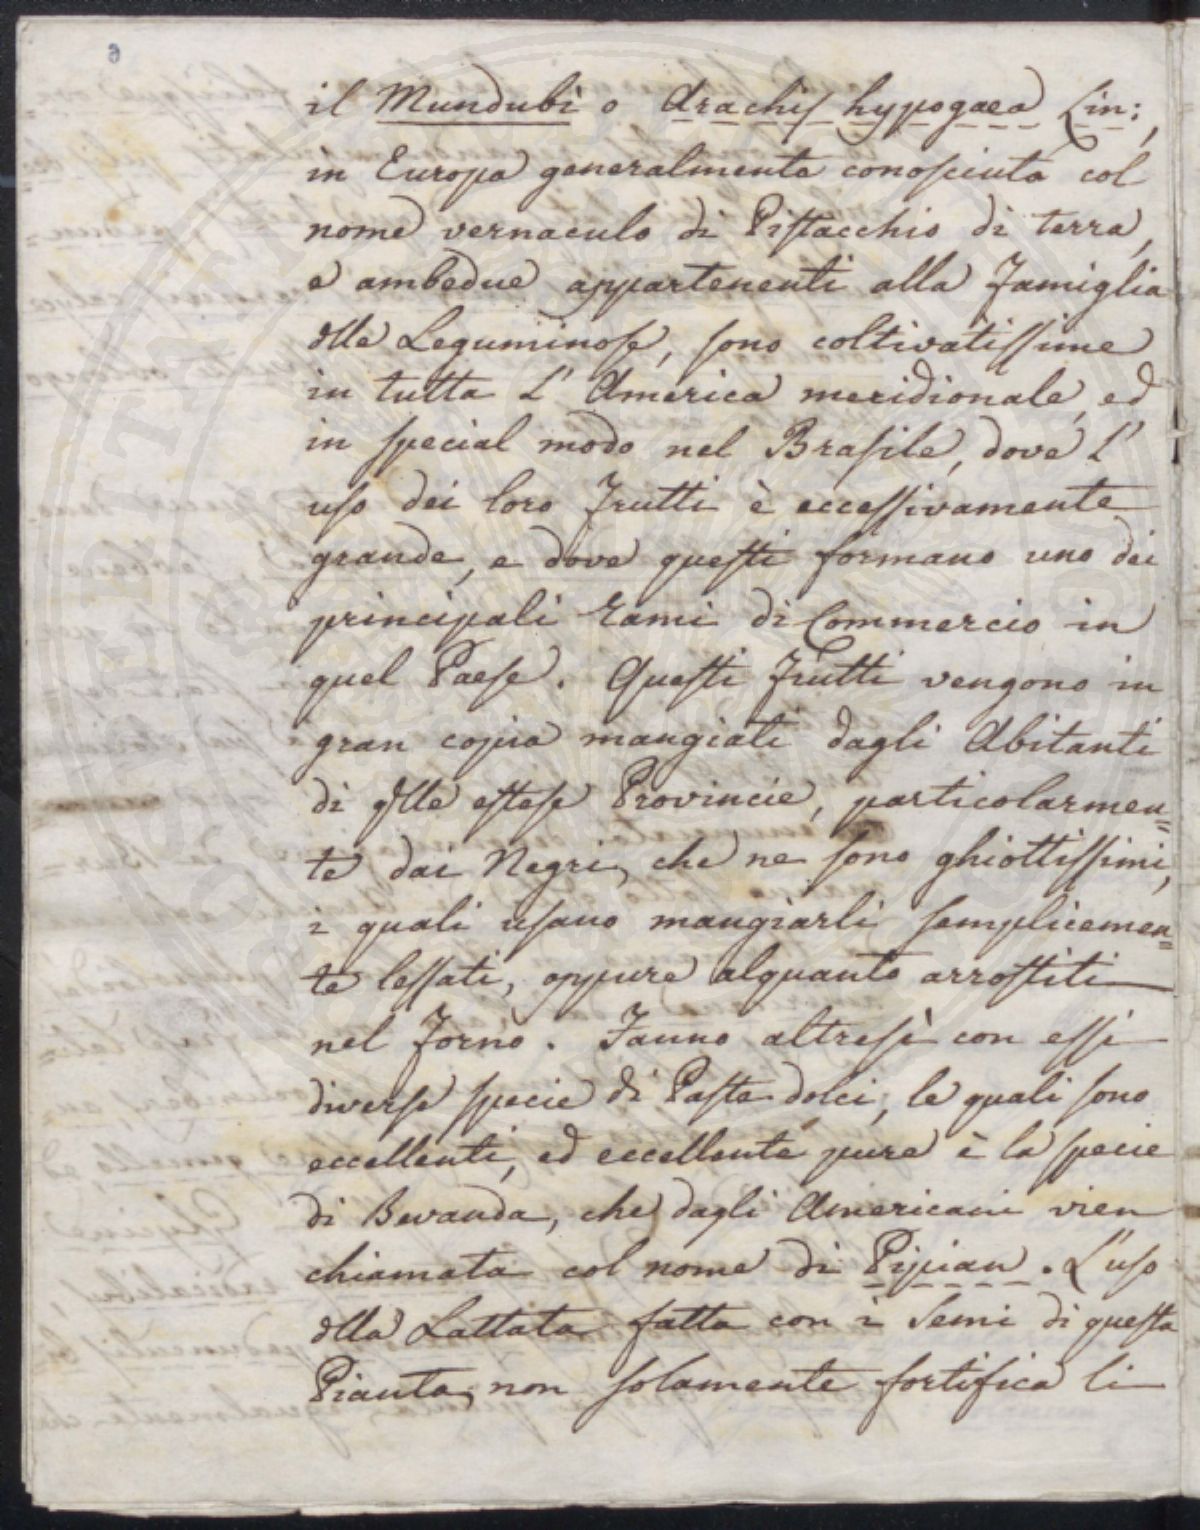 6
il Mundubì o Arachis hypogaea Lin:,
in Europa generalmente conosciuta col
nome vernaculo di Pistacchio di terra,
e ambedue appartenenti alla Famiglia
dlle Leguminose, sono coltivatissime
in tutta l' America meridionale, ed
in special modo nel Brasile, dove l'
uso dei loro Frutti è eccessivamente
grande, e dove questi formano uno dei
principali Rami di Commercio in
quel Paese. Questi Frutti vengono in
gran copia mangiati dagli Abitanti
di qlle estese Provincie, particolarmen=
te dai Negri, che ne sono ghiottissimi,
i quali usano mangiarli semplicemen=
te lessati, oppure alquanto arrostiti
nel Forno. Fanno altresì con essi
diverse specie di Paste dolci, le quali sono
eccellenti, ed eccellente pure è la specie
di Bevanda, che dagli Americani vien
chiamata col nome di Pipian. L'uso
dlla Lattata fatta con i Semi di questa
Pianta, non solamente fortifica li